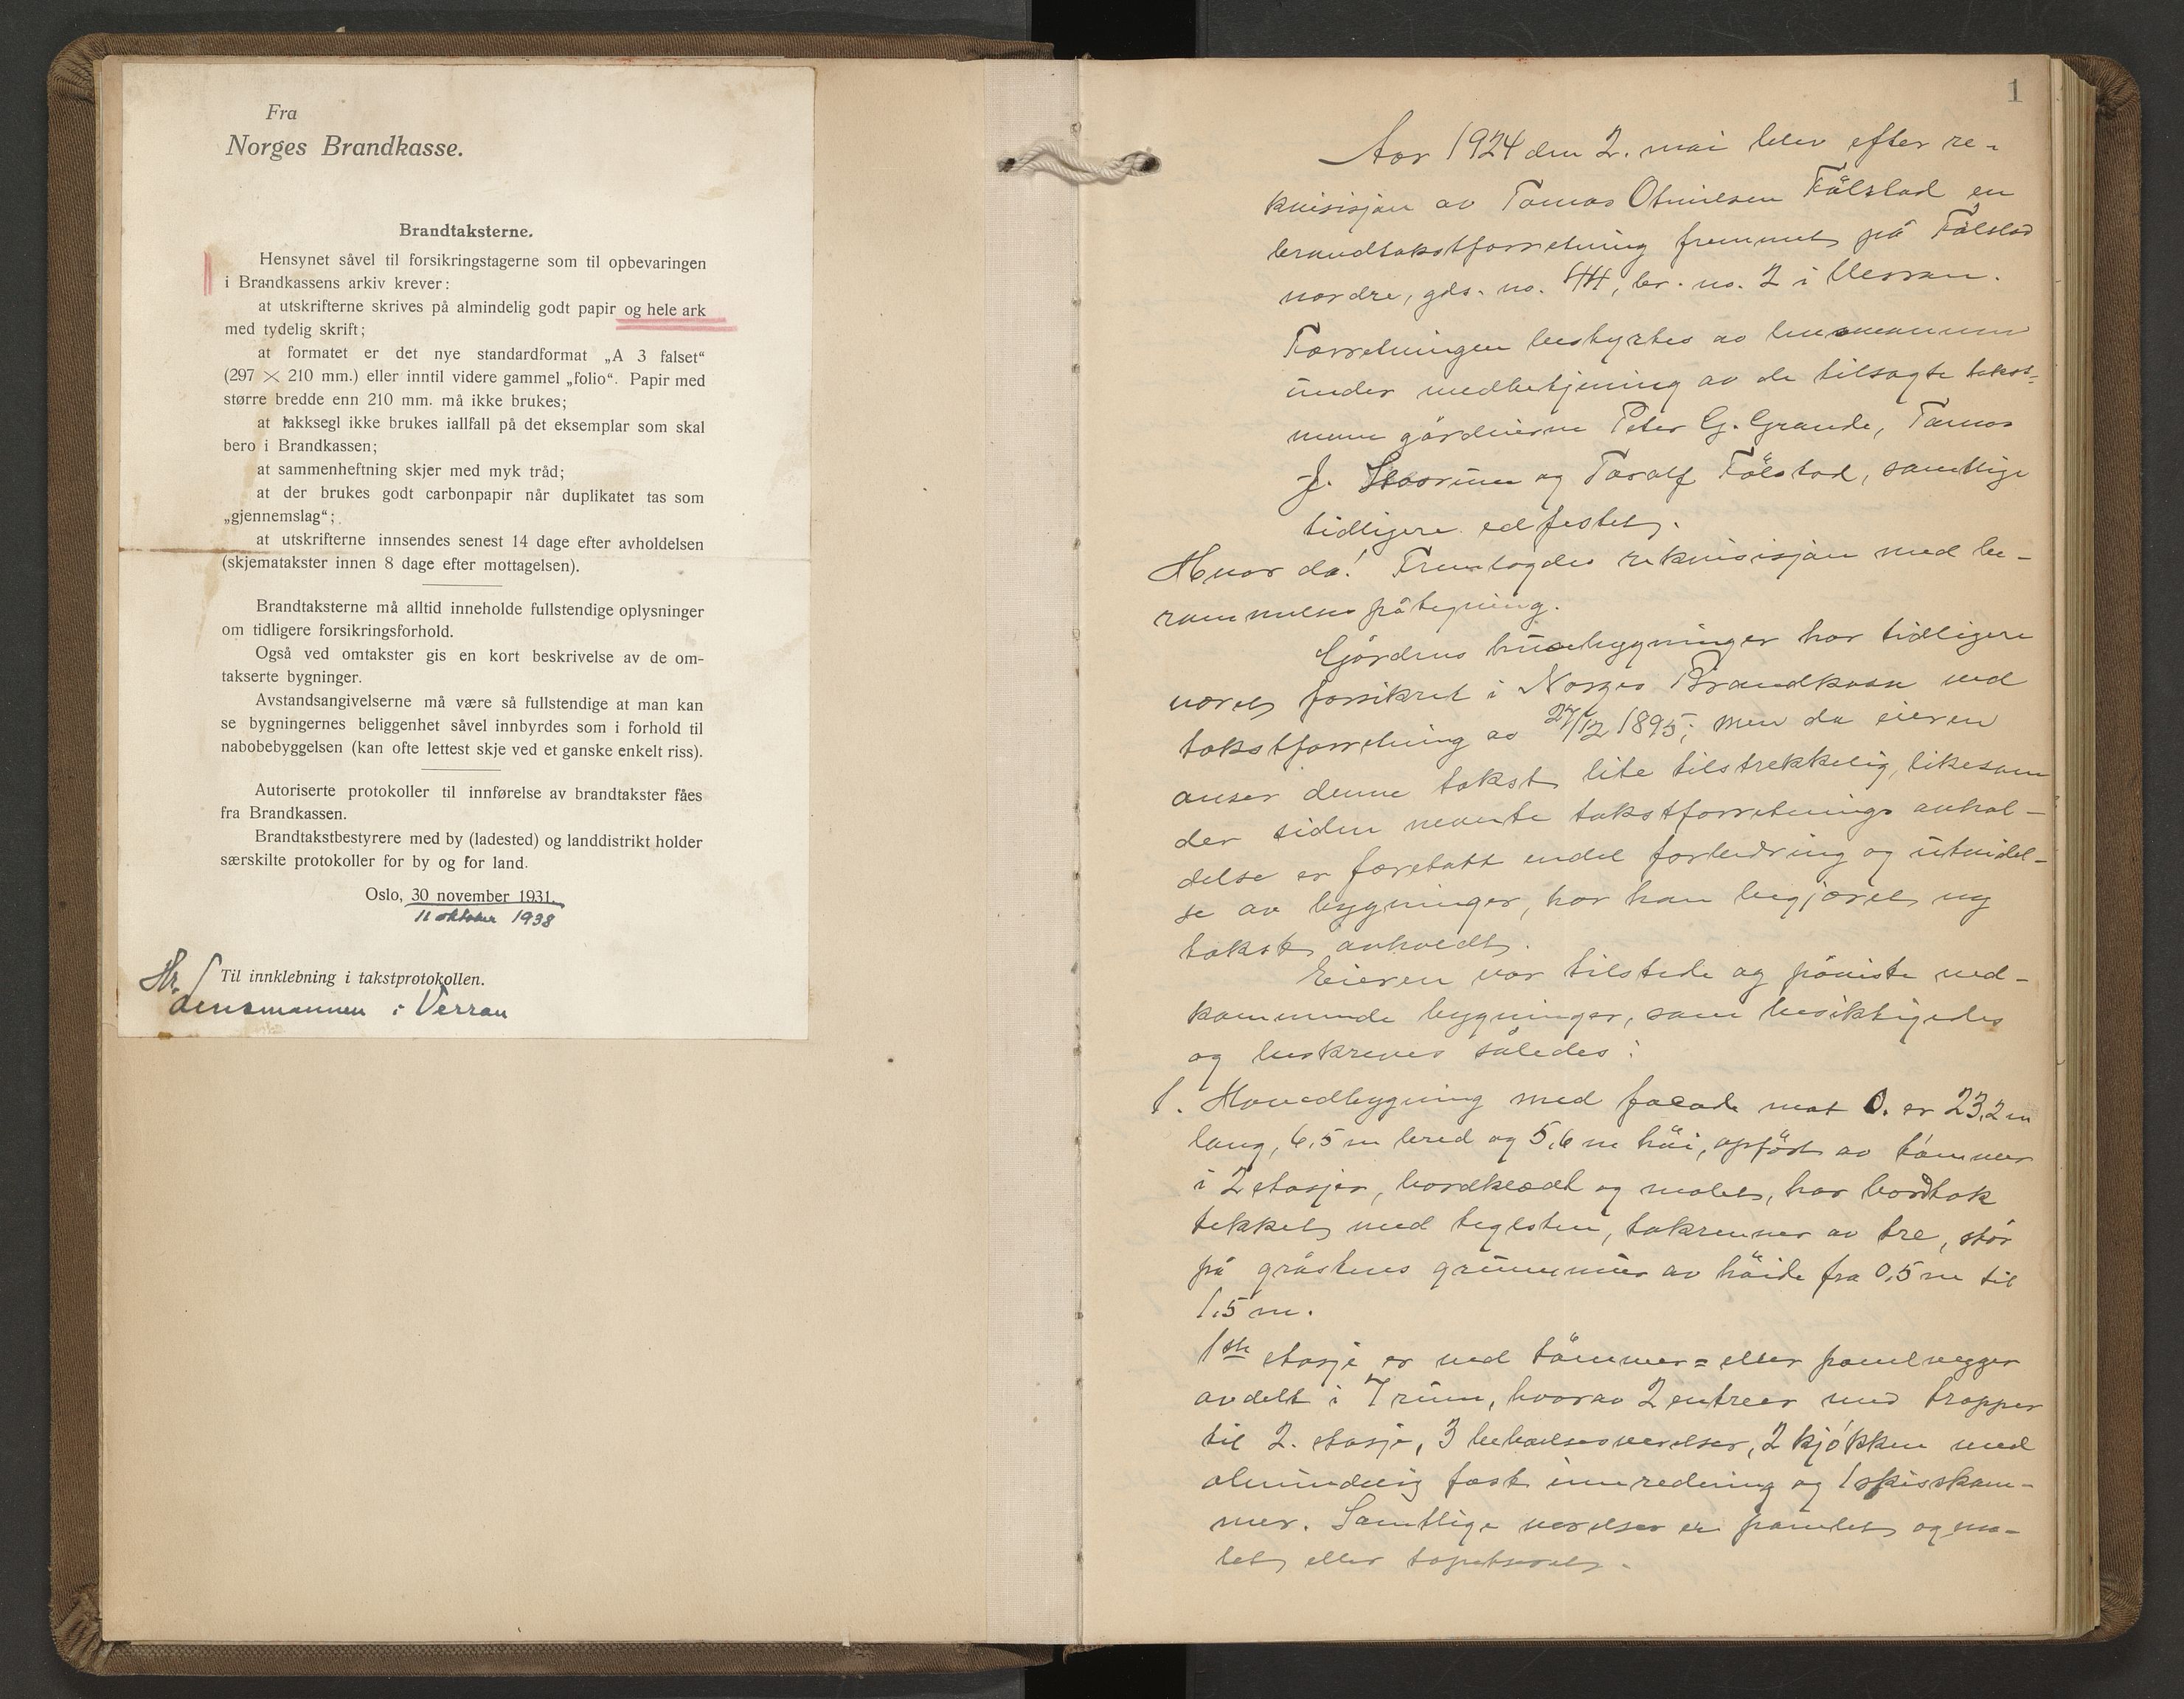 Fra
Norges Brandkasse.
Brandtaksterne.
Hensynet såvel til forsikringstagerne som til opbevaringen
i Brandkassens arkiv krever:
at utskrifterne skrives på almindelig godt papir og hele ark
med tydelig skrift;
at formatet er det nye standardformat „A 3 falset“
(297 × 210 mm.) eller inntil videre gammel „folio“. Papir med
større bredde enn 210 mm. må ikke brukes;
at lakksegl ikke brukes iallfall på det eksemplar som skal
bero i Brandkassen;
at sammenheftning skjer med myk tråd;
at der brukes godt carbonpapir når duplikatet tas som
„gjennemslag“;
at utskrifterne innsendes senest 14 dage efter avholdelsen
(skjematakster innen 8 dage efter mottagelsen).
Brandtaksterne må alltid inneholde fullstendige oplysninger
om tidligere forsikringsforhold.
Også ved omtakster gis en kort beskrivelse av de om-
takserte bygninger.
Avstandsangivelserne må være så fullstendige at man kan
se bygningernes beliggenhet såvel innbyrdes som i forhold til
nabobebyggelsen (kan ofte lettest skje ved et ganske enkelt riss).
Autoriserte protokoller til innførelse av brandtakster fåes
fra Brandkassen.
Brandtakstbestyrere med by (ladested) og landdistrikt holder
særskilte protokoller for by og for land.
Oslo, 30 november 1931.
11 oktober 1938
Til innklebning i takstprotokollen.
Hr. Lensmannen i Verran
1
Aar 1924 den 2. mai blev efter re-
kvisisjon av Tomas Otnielsen Fölstad en
brandtakstforretning fremmet på Fölstad
nordre, gds. no. 44, br. no. 2 i Verran.
Forretningen bestyrtes av lensmannen
under medbetjening av de tilsagte takst-
menn gårdeierne Peter G. Grande, Tomas
J. og Toralf Fölstad, samtlige
tidligere edfestet.
Hvor da! Fremlagdes rekvisisjon med be-
rammelsespåtegning.
Gårdens husebygninger har tidligere
været forsikret i Norges Brandkasse ved
takstforretning av 27/12 1895; men da eieren
anser denne takst lite tilstrekkelig, likesom
der siden nevnte takstforretnings avhol-
delse er foretatt endel forbedring og utvidel-
se av bygninger, har han begjæret ny
takst avholdt.
Eieren var tilstede og påviste ved-
kommende bygninger, som besiktigedes
og beskreves således:
1. Hovedbygning med facade mot O. er 23,2 m
lang, 6,5 m bred og 5,6 m höi, opfört av tömmer
i 2 etasjer, bordklædt og malet, har bordtak
tekket med teglsten, takrenner av tre, står
på gråstens grunnmur av höide fra 0,5 m til
1,5 m.
1ste etasje er ved tömmer= eller panelvegger
avdelt i 7 rum, hvorav 2 entreer med trapper
til 2. etasje, 3 beboelsesværelser, 2 kjökken med
almindelig fast innredning og 1 spisskam-
mer. Samtlige værelser er panelet og ma-
let eller tapetseret.